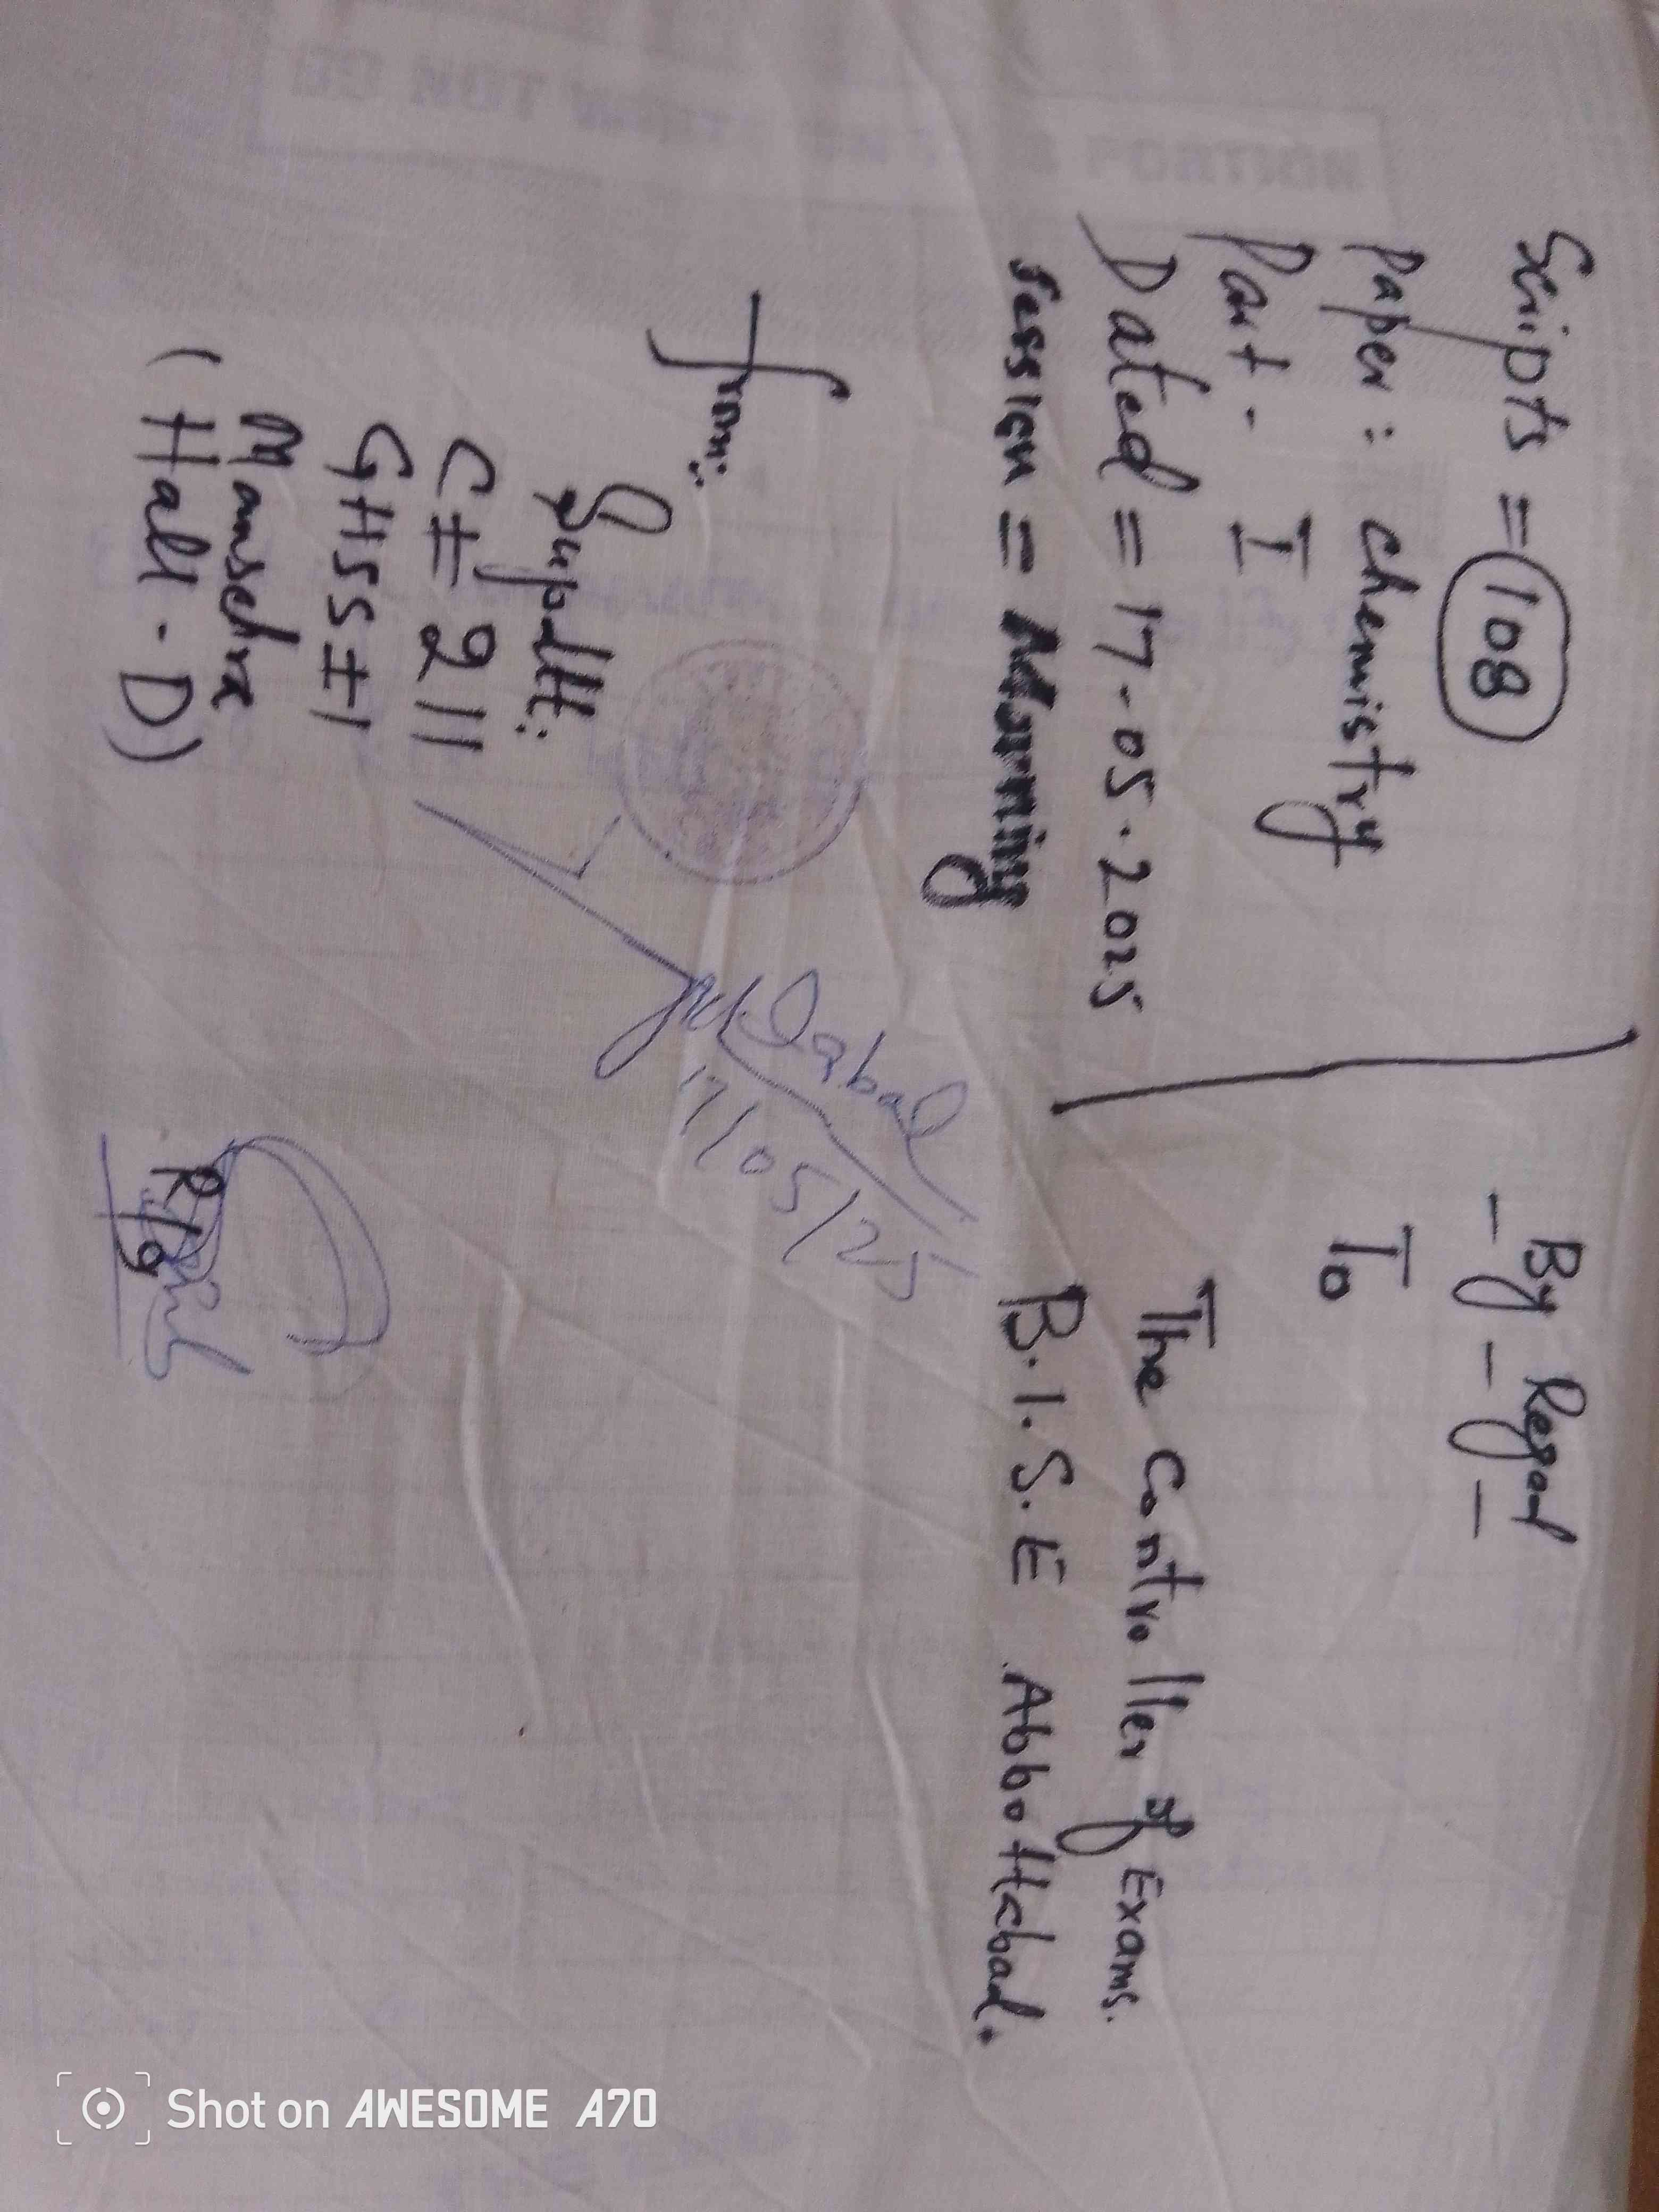 Scripts = 108
Paper: Chemistry
Part - I
Dated = 17-05-2025
Session = Morning
- By Regd -
To
The Controller of Exams.
B.I.S.E Abbottabad.
from:
Supdtt:
C± 211
GHSS ±1
Mansehra
(Hall-D)
17/05/25
Shot on AWESOME A70